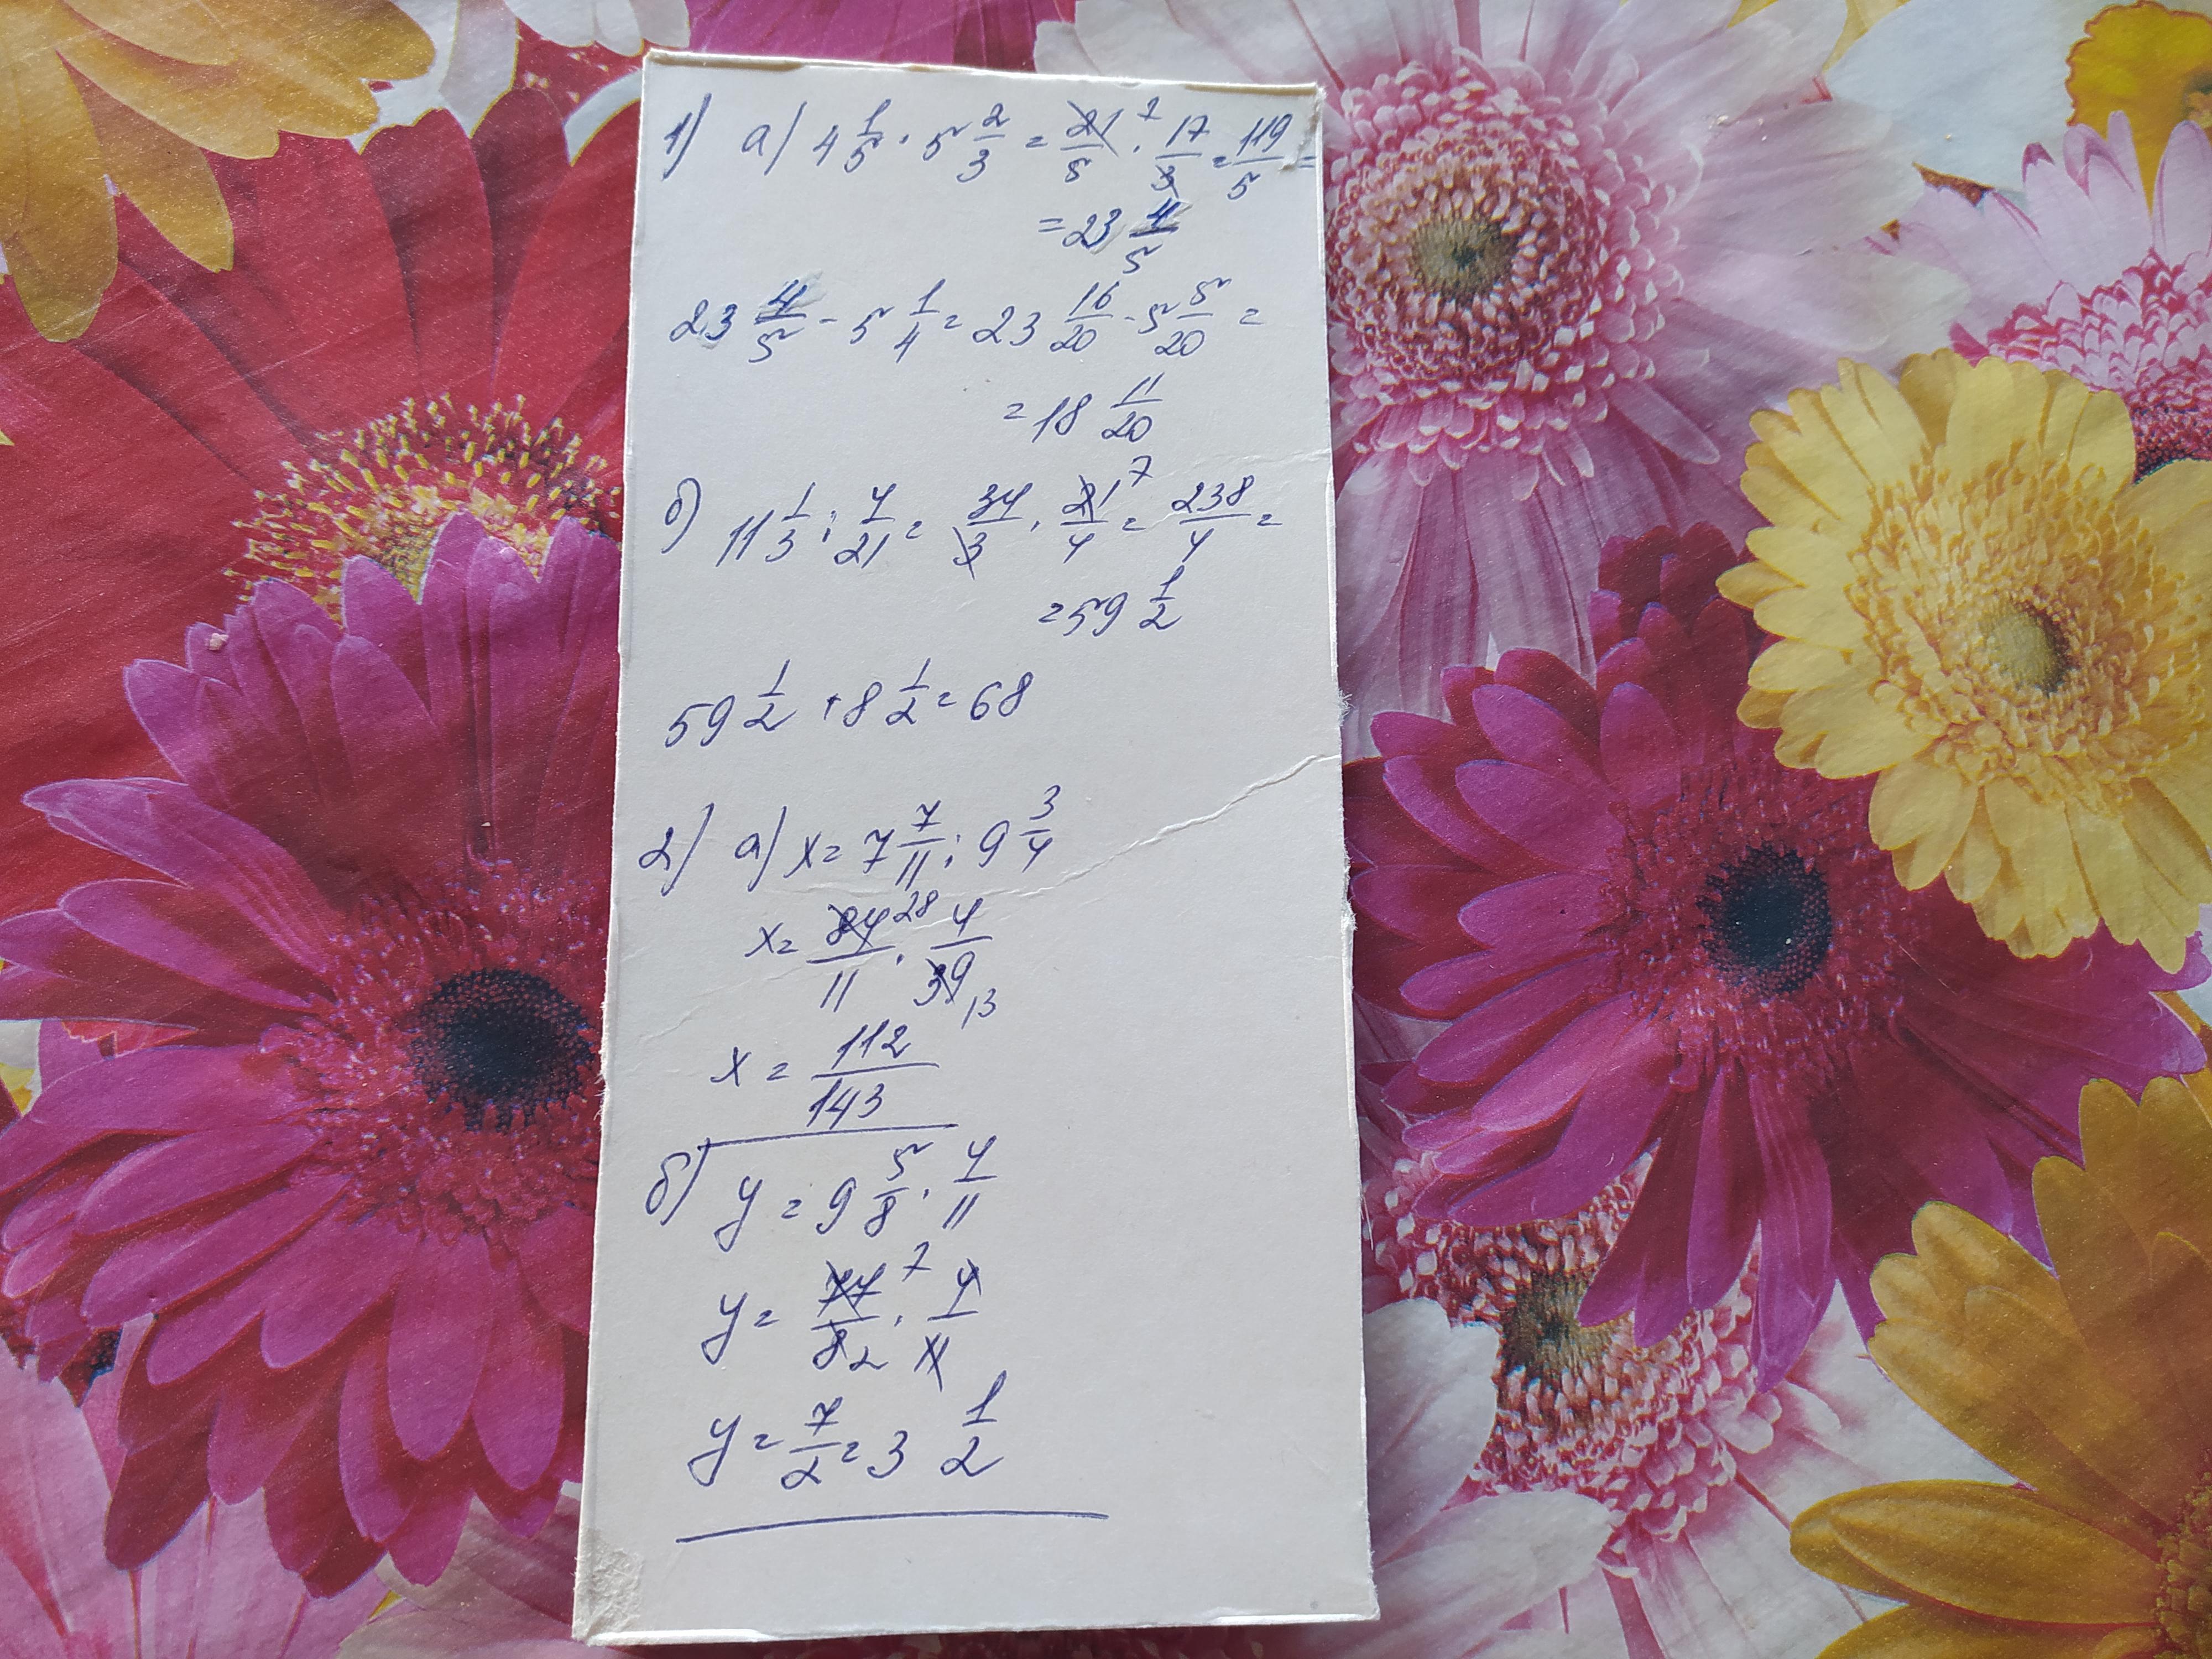 1) а) 4 1/5 · 5 2/3 = 21/5 7 · 17/3 = 119/5 =
= 23 4/5
23 4/5 - 5 1/4 = 23 16/20 - 5 5/20 =
= 18 11/20
б) 11 1/3 : 4/21 = 34/3 · 21/4 7 = 238/4 =
= 59 1/2
59 1/2 + 8 1/2 = 68
2) а) x = 7 7/11 : 9 3/4
x = 84/11 28 · 4/39 13
x = 112/143
б) y = 9 5/8 · 4/11
y = 77/8 7 2 · 4/11
y = 7/2 = 3 1/2